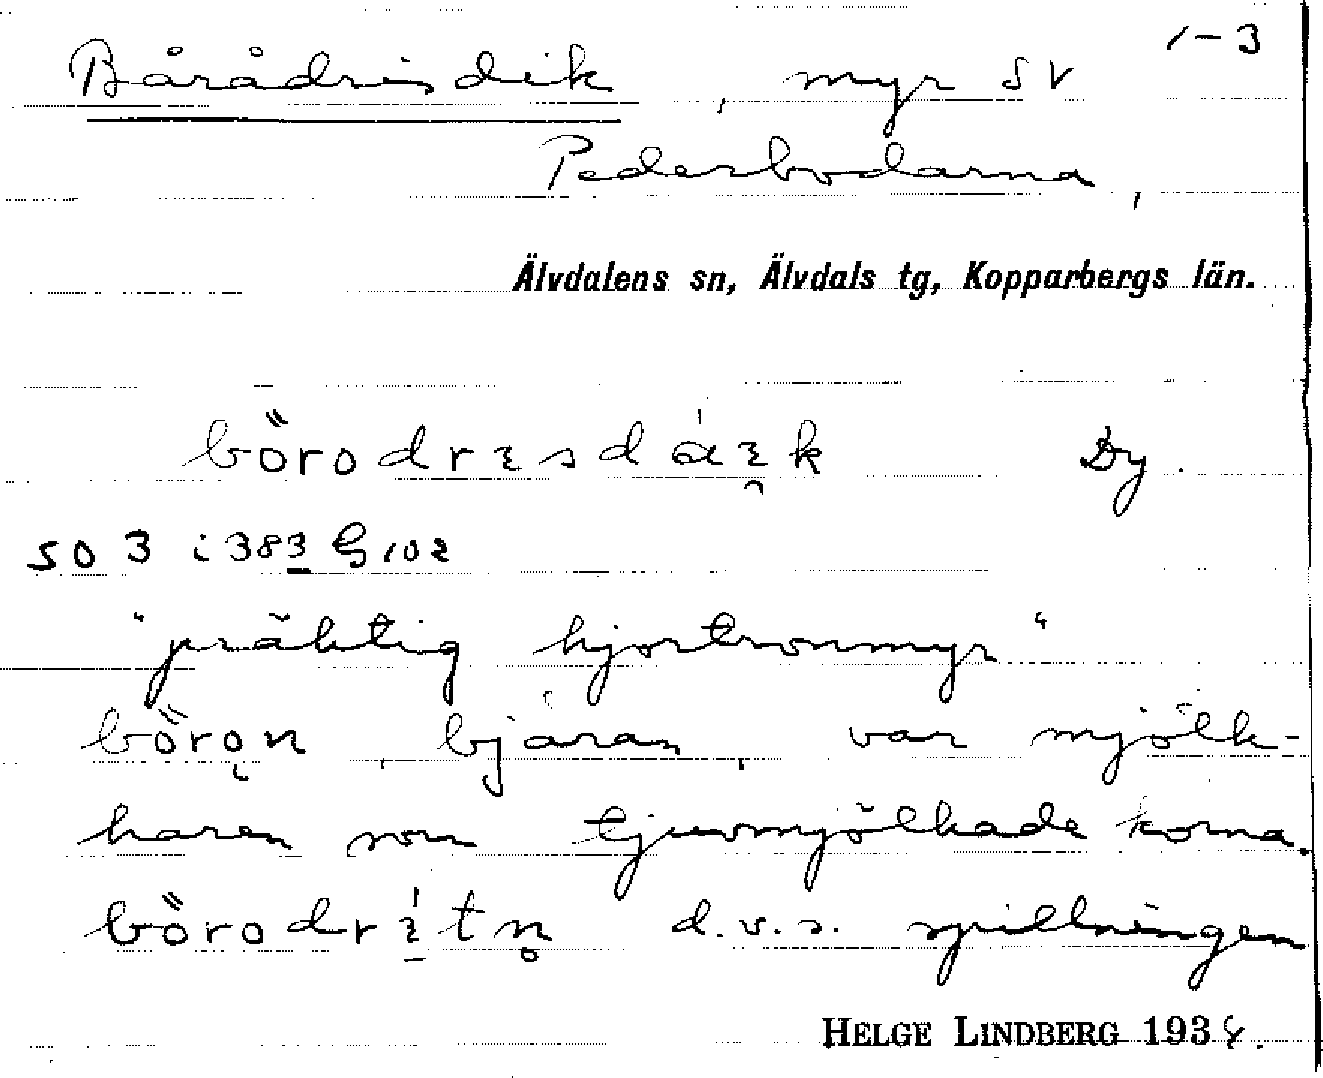 1-3
Bårådrisdik, myr SV
Pederbodarna,
Älvdalens sn, Älvdals tg, Kopparbergs län.
bőrodrɪsdáɪ̯k Dy.
SO 3 i 383 G 102
"präktig hjortronmyr"
bőrǫn, bjäran, var mjölk-
haren som tjuvmjölkade korna.
bőrodrɪ́tn̥ d.v.s. spillningen
HELGE LINDBERG 1934.